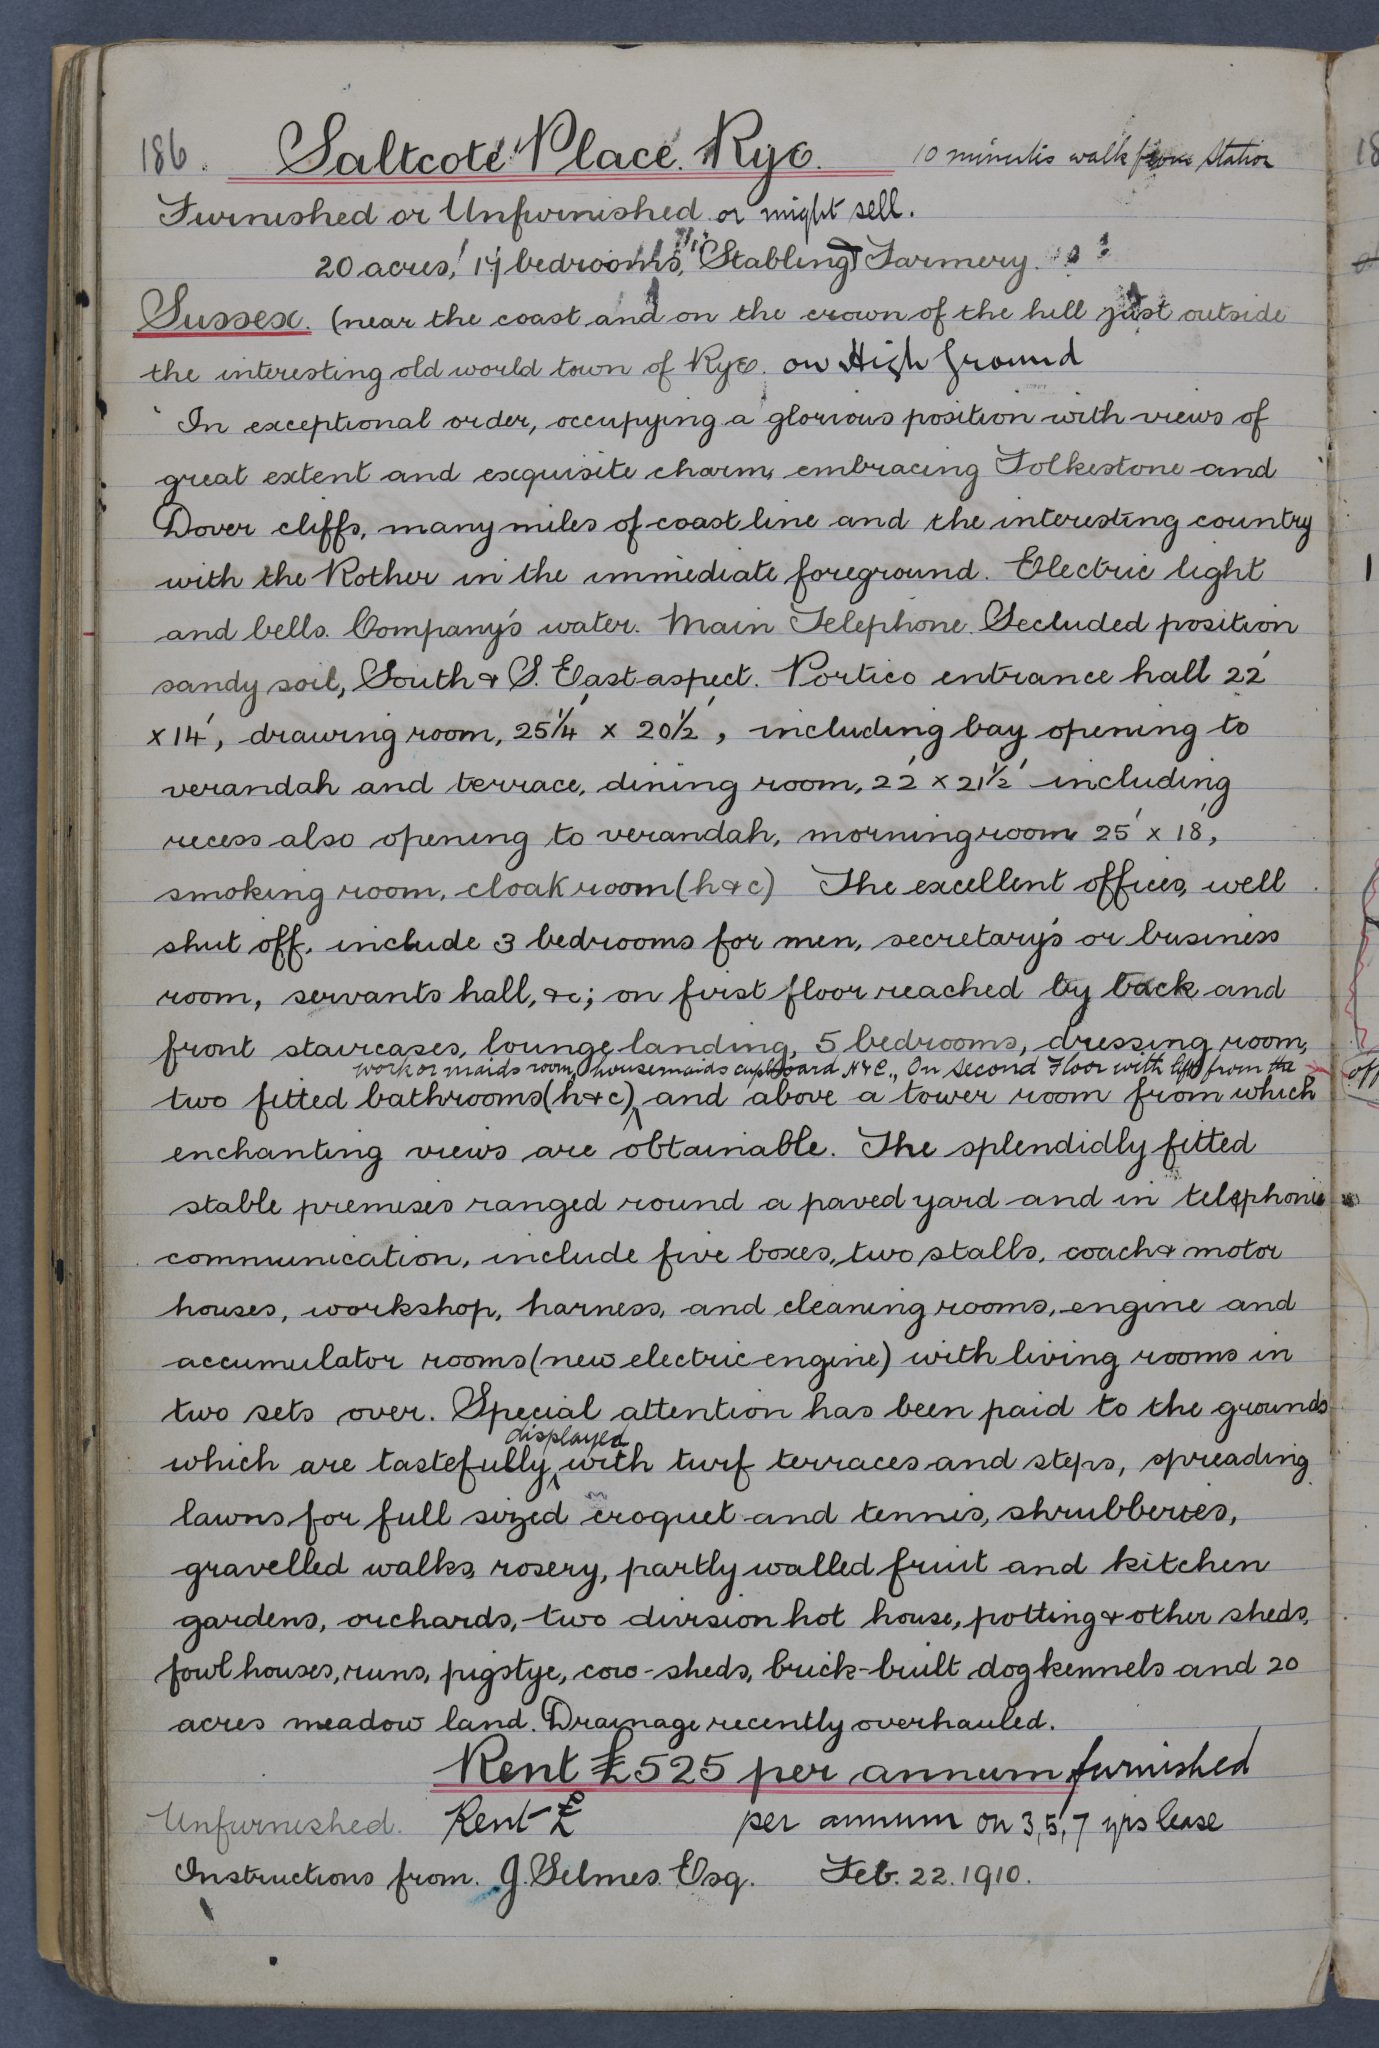 186. "Saltcote" Place. Rye. 10 minutes walk from Station
Furnished or Unfurnished or might sell.
20 acres, 17 bedrooms, Stabling Farmery.
Sussex. (near the coast and on the crown of the hill just outside
the interesting old world town of Rye. on High Ground
In exceptional order, occupying a glorious position with views of
great extent and exquisite charm, embracing Folkestone and
Dover cliffs, many miles of coast line and the interesting country
with the Rother in the immediate foreground. Electric light
and bells. Company's water. Main Telephone. Secluded position
sandy soil, South & S. East aspect. Portico entrance hall 22'
x 14', drawing room, 25¼' x 20½', including bay opening to
verandah and terrace, dining room, 22' x 21½' including
recess also opening to verandah, morningroom 25' x 18',
smoking room, cloak room (h & c) The excellent offices, well
shut off, include 3 bedrooms for men, secretary's or business
room, servants hall, &c; on first floor reached by back and
front staircases, lounge landing, 5 bedrooms, dressing room,
work or maids room, housemaids cupboard &c., On Second Floor with lift from the
two fitted bathrooms (h & c) and above a tower room from which
enchanting views are obtainable. The splendidly fitted
stable premises ranged round a paved yard and in telephonic
communication, include five boxes, two stalls, coach & motor
houses, workshop, harness, and cleaning rooms, engine and
accumulator rooms (new electric engine) with living rooms in
two sets over. Special attention has been paid to the grounds
displayed
which are tastefully with turf terraces and steps, spreading
lawns for full sized croquet and tennis, shrubberies,
gravelled walks, rosery, partly walled fruit and kitchen
gardens, orchards, two division hot house, potting & other sheds,
fowl houses, runs, pigstye, cow-sheds, brick-built dog kennels and 20
acres meadow land. Drainage recently overhauled.
Rent £525 per annum furnished
Unfurnished. Rent £ per annum on 3, 5, 7 yrs lease
Instructions from. J. Selmes. Esq. Feb. 22. 1910.